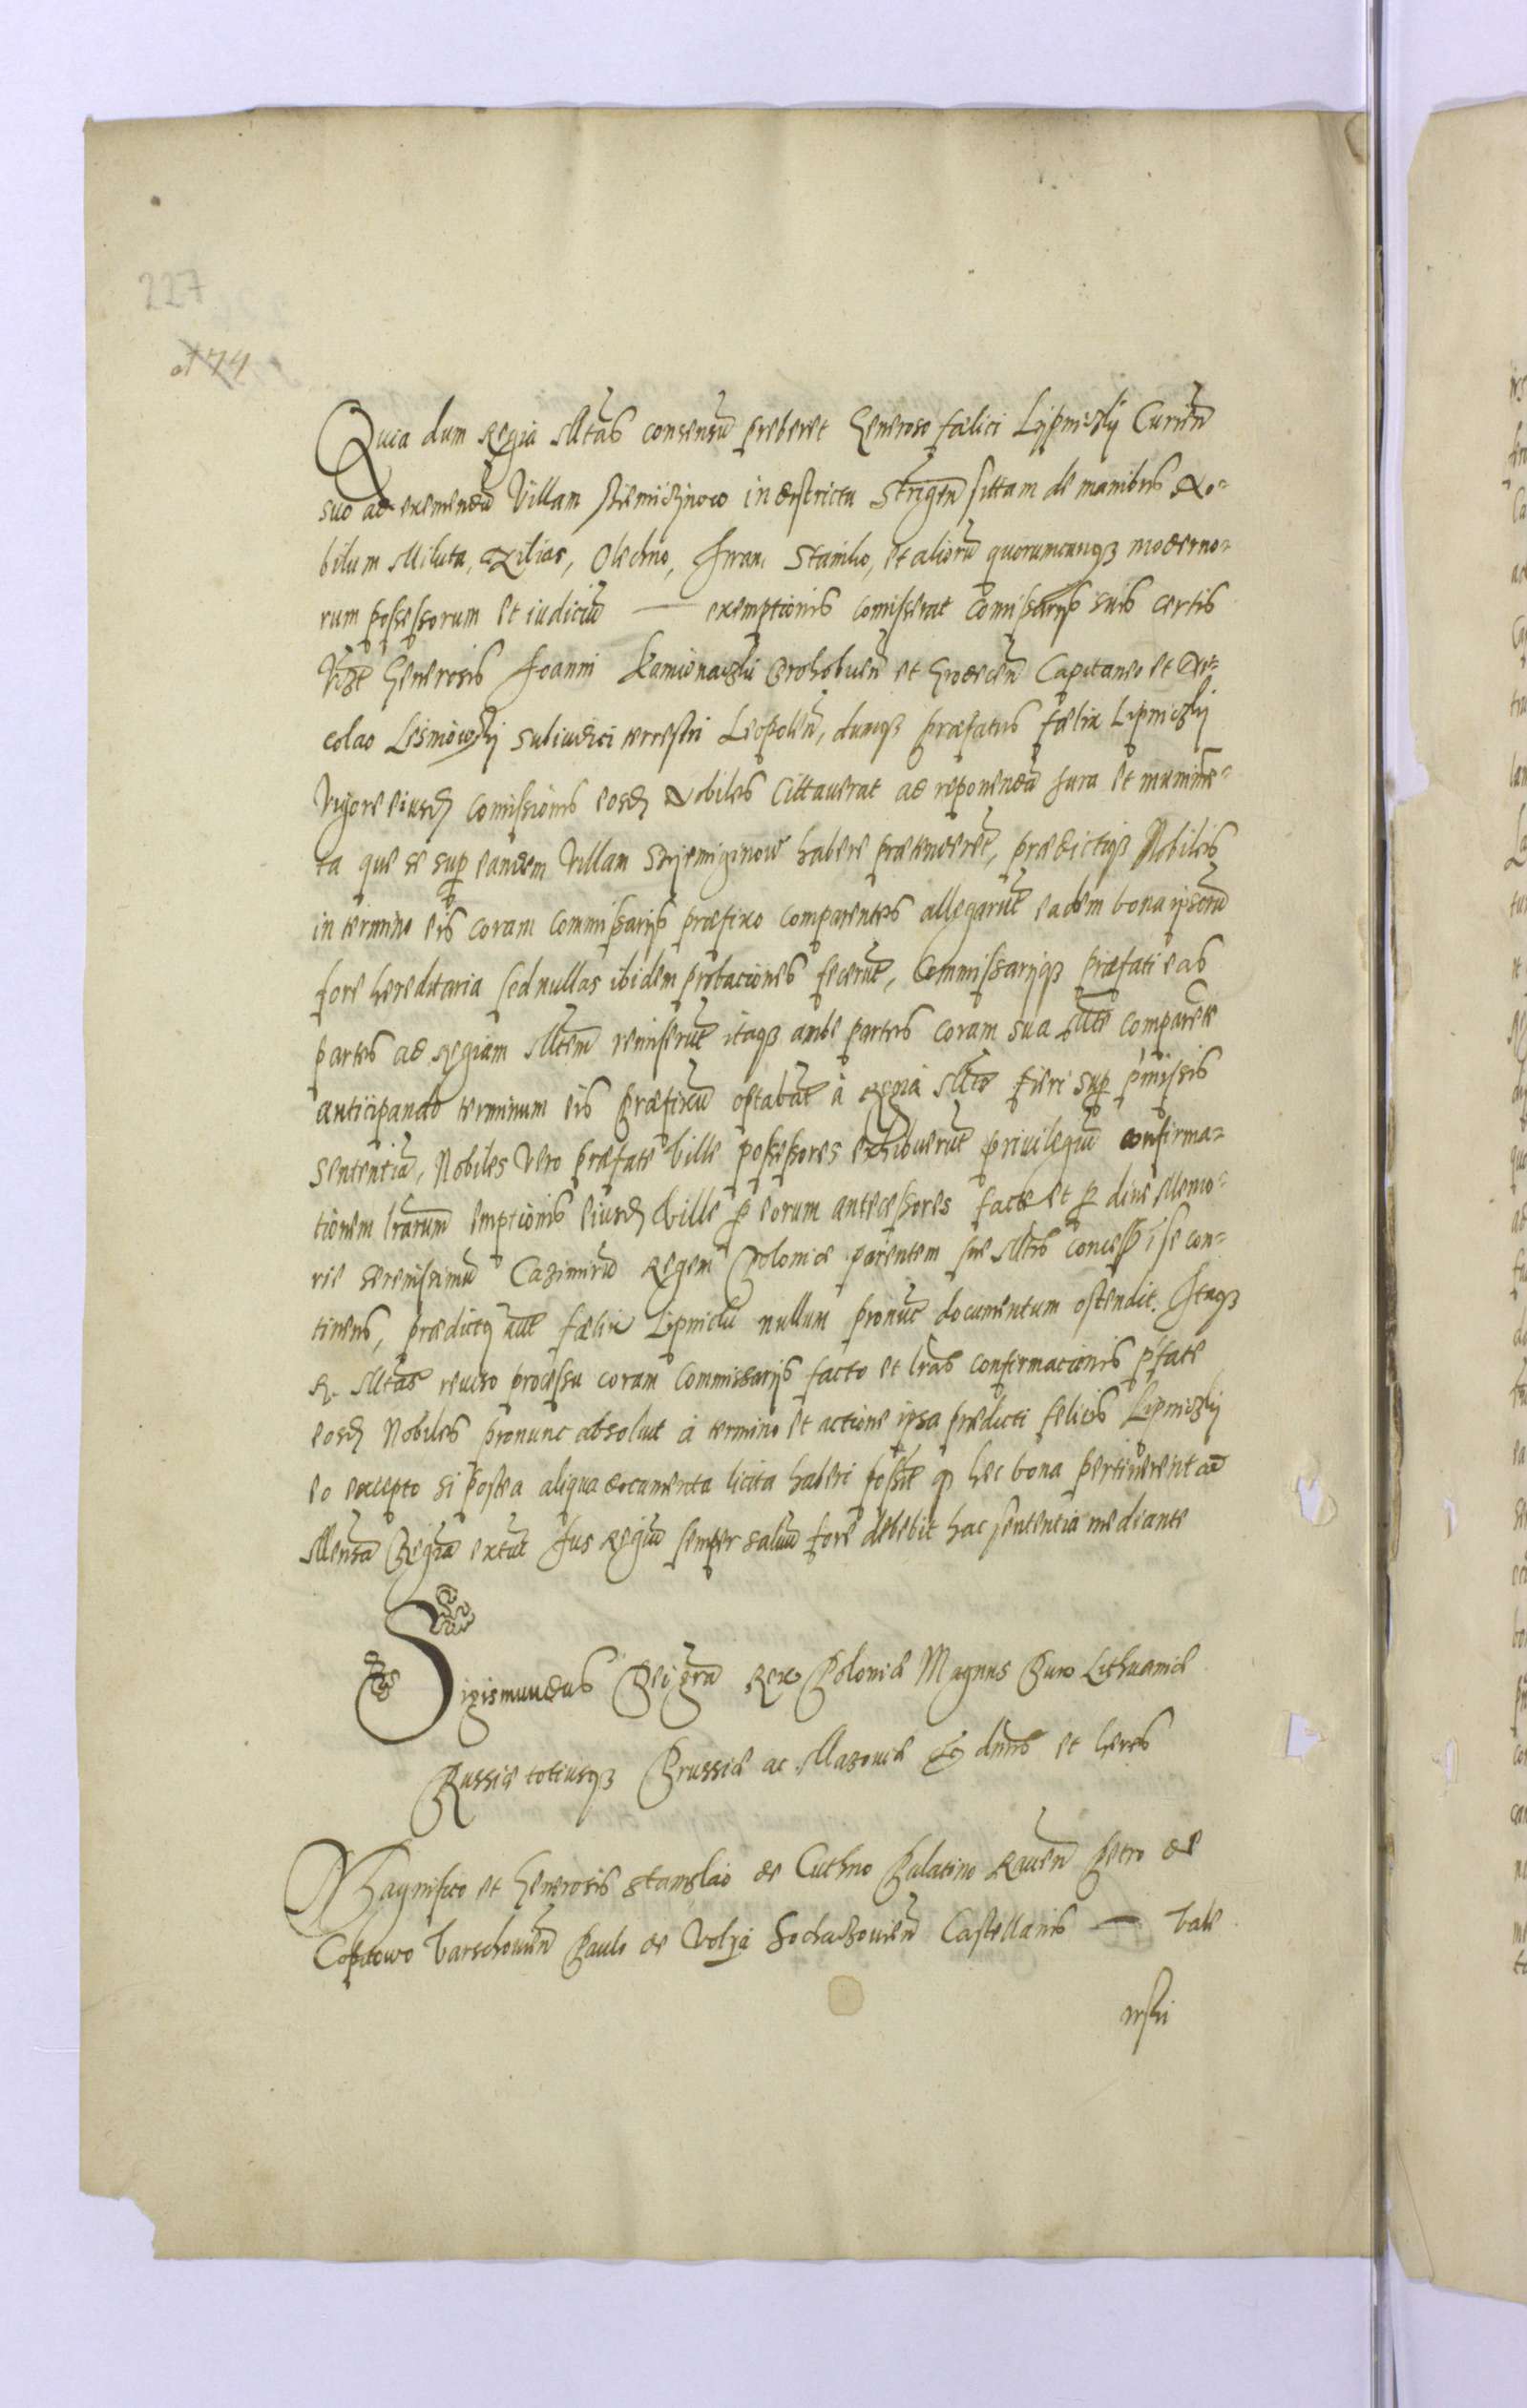 227
174
Quia dum Regia Mtas consensũ preberet Generoso fælici Lypniczky Curien̄
suo ad exemendũ Villam Stiemiczynow in districtu Strigen̄ sittam de manibus No-
bilum Miluta, Olechno, Iwan, Stanko, et aliorũ quorumcunqȝ moderno-
rum possessorum et iudiciũ — exemptionis comisserat Comissarijs suis certis
Vizt Generosis Joanni Kamionaczki Drohobuen̄ et Grodecen̄ Capitaneo et Ni-
colao Lesniowsky subiudici terrestri Leopolien̄, dumqȝ præfatus fælix Lipniczky
Vigore eiusd comissionis eosd Nobiles Cittaverat ad reponendũ Iura et munime-
ta que se sup eandem Villam Strjemiginow habere prætenderet, prædictiqȝ Nobiles
in termino eis coram Commissarijs præfixo comparentes allegarũt eadem bona ipsorũ
fore hereditaria sed nullas ibidem probaciones fecerũt, Commissarijqȝ præfati eas
partes ad Regiam Mtem remiserũt itaqȝ ambe partes coram sua Mte comparẽte
anticipando terminum eis præfixũ optabãt à Regia Mte fieri sup p̃missis
sententiã, Nobiles Vero præfate Ville possessores exhibuerũt privilegiũ confirma-
tionem lrarum emptionis eiusd Ville p eorum antecessores facte et p dive Memo-
rie serenissimũ Cazimirũ Regem Poloniæ parentem sue Mtis concess ĩ se con-
tinens, prædictq aũt fælix Lipnicki nullum pronũc documentum ostendit. Itaqȝ
R. Mtas reviso processu coram Commissarijs facto et lras confirmacionis p̃fate
eosd Nobiles pronunc absolvit à termino et actione ipsa prædicti felicis Lipniczky
eo excepto si postea aliqua documenta licita haberi possĩt q hec bona pertinerent ad
Mensã Regiã extũc Jus Regiũ semper salvũ fore debebit hac sententia mediante
Sigismundus Dei gra Rex Poloniæ Magnus Dux Lithuaniæ
Russiæ totiusqȝ Prussiæ ac Mazoviæ &c dnus et heres
Magnifico et Generosis Stanislao de Cuthno Palatino Raven̄ Petro de
Copitowo Varschovien̄ Paulo de Volja Sochaczovien̄ Castellanis — Vale